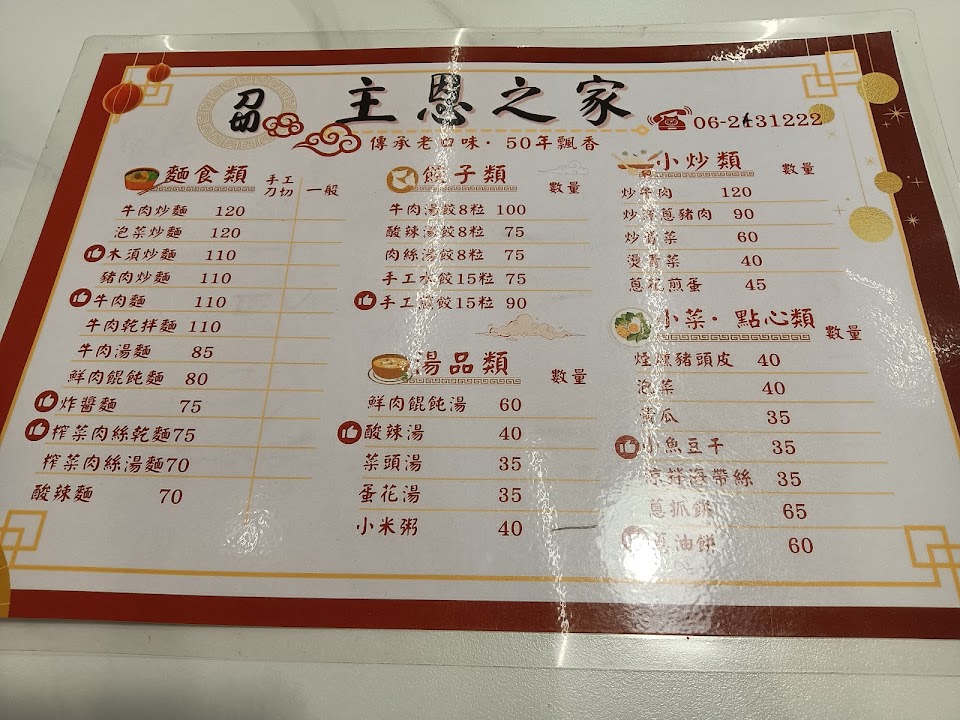 刀切 主恩之家 06-2431222
傳承老口味·50年飄香
麵食類 手工刀切 一般
牛肉炒麵 120
泡菜炒麵 120
木須炒麵 110
豬肉炒麵 110
牛肉麵 110
牛肉乾拌麵 110
牛肉湯麵 85
鮮肉餛飩麵 80
炸醬麵 75
榨菜肉絲乾麵 75
榨菜肉絲湯麵 70
酸辣麵 70
餃子類 數量
牛肉湯餃8粒 100
酸辣湯餃8粒 75
肉絲湯餃8粒 75
手工水餃15粒 75
手工煎餃15粒 90
湯品類 數量
鮮肉餛飩湯 60
酸辣湯 40
菜頭湯 35
蛋花湯 35
小米粥 40
小炒類 數量
炒牛肉 120
炒洋蔥豬肉 90
炒青菜 60
燙青菜 40
蔥花煎蛋 45
小菜·點心類 數量
煙燻豬頭皮 40
泡菜 40
黃瓜 35
小魚豆干 35
涼拌海帶絲 35
蔥抓餅 65
蔥油餅 60